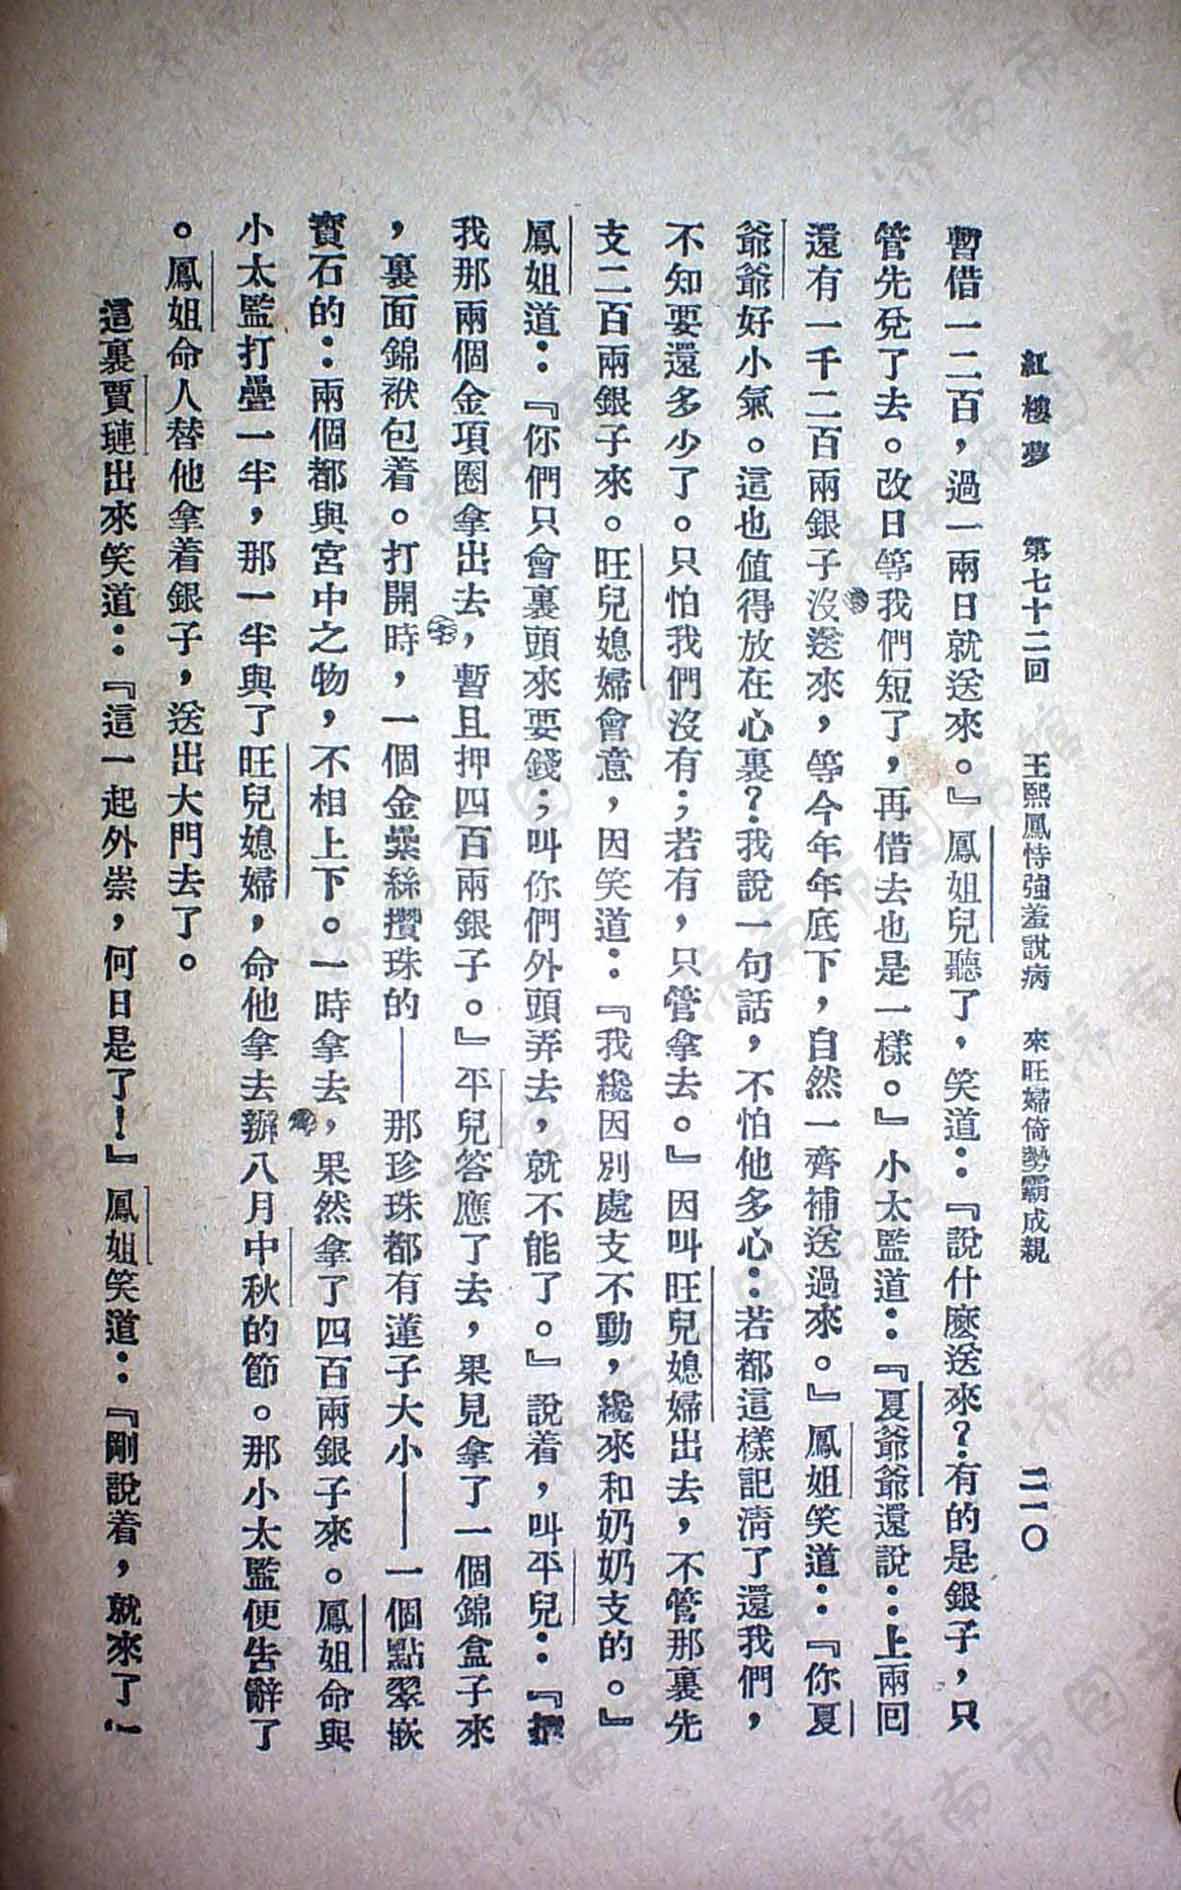 紅樓夢　第七十二回　王熙鳳恃強羞說病　來旺婦倚勢霸成親　二一〇
暫借一二百，過一兩日就送來。』鳳姐兒聽了，笑道：『說什麼送來？有的是銀子，只
管先兌了去。改日等我們短了，再借去也是一樣。』小太監道：『夏爺爺還說：上兩回
還有一千二百兩銀子沒送來，等今年年底下，自然一齊補送過來。』鳳姐笑道：『你夏
爺爺好小氣。這也值得放在心裏？我說一句話，不怕他多心：若都這樣記清了還我們，
不知要還多少了。只怕我們沒有；若有，只管拿去。』因叫旺兒媳婦出去，不管那裏先
支二百兩銀子來。旺兒媳婦會意，因笑道：『我纔因別處支不動，纔來和奶奶支的。』
鳳姐道：『你們只會裏頭來要錢；叫你們外頭弄去，就不能了。』說着，叫平兒：『把
我那兩個金項圈拿出去，暫且押四百兩銀子。』平兒答應了去，果見拿了一個錦盒子來
，裏面錦袱包着。打開時，一個金纍絲攢珠的——那珍珠都有蓮子大小——一個點翠嵌
寶石的：兩個都與宮中之物，不相上下。一時拿去，果然拿了四百兩銀子來。鳳姐命與
小太監打疊一半，那一半與了旺兒媳婦，命他拿去辦八月中秋的節。那小太監便告辭了
。鳳姐命人替他拿着銀子，送出大門去了。
這裏賈璉出來笑道：『這一起外祟，何日是了！』鳳姐笑道：『剛說着，就來了